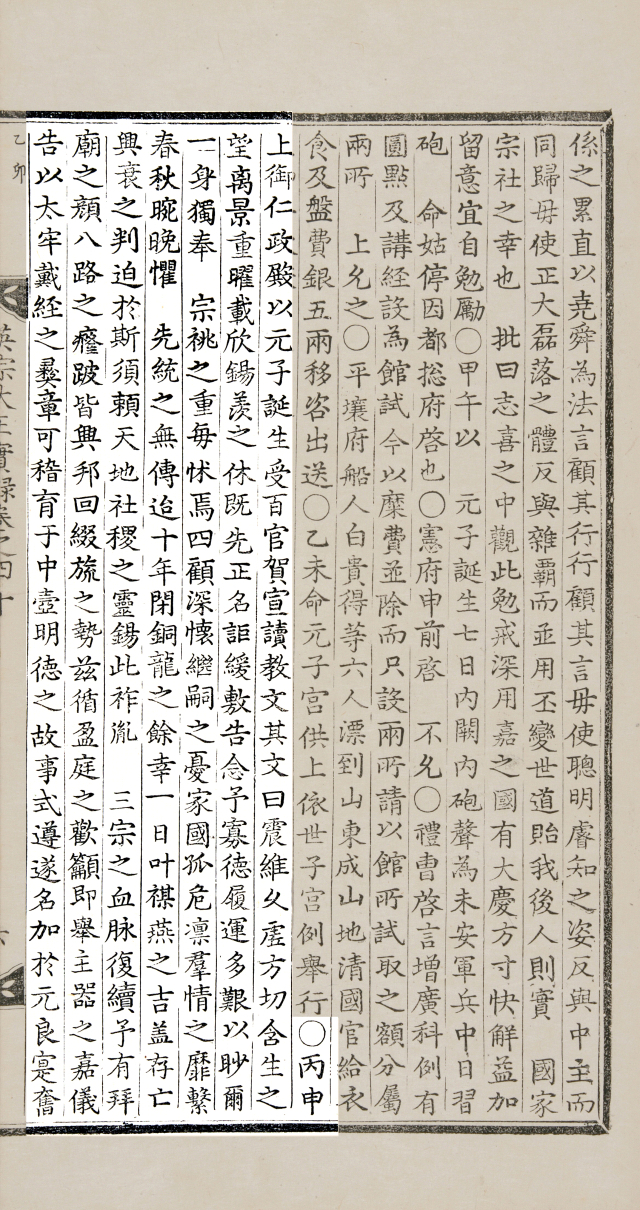 係之累直以堯舜為法言顧其行行顧其言毋使聰明睿知之姿反與中主而
同歸毋使正大磊落之體反與雜霸而並用丕變世道貽我後人則實 國家
宗社之幸也 批曰志喜之中觀此勉戒深用嘉之國有大慶方寸快解益加
留意宜自勉勵○甲午以 元子誕生七日內闕內砲聲為未安軍兵中日習
砲 命姑停因都摠府啓也○憲府申前啓 不允○禮曹啓言增廣科例有
圓點及講經設為館試今以糜費並除而只設兩所請以館所試取之額分屬
兩所 上允之○平壤府船人白貴得等六人漂到山東成山地清國官給衣
食及盤費銀五兩移咨出送○乙未命元子宮供上依世子宮例舉行○丙申
上御仁政殿以元子誕生受百官賀宣讀教文其文曰震維久虛方切含生之
望离景重曜載欣錫羨之休旣先正名詎緩敷告念予寡德履運多艱以眇爾
一身獨奉 宗祧之重每怵焉四顧深懷繼嗣之憂家國孤危凛羣情之靡繫
春秋晼晚懼 先統之無傳迨十年閉銅龍之餘幸一日叶禖燕之吉盖存亡
興衰之判迫於斯須頼天地社稷之靈錫此祚胤 三宗之血脉復續予有拜
廟之顔八路之癃跛皆興邦回綴旒之勢玆循盈庭之歡籲即舉主器之嘉儀
告以太牢戴經之彛章可稽育于中壼明德之故事式遵遂名加於元良寔奮
乙卯
英宗大王實録卷之四十